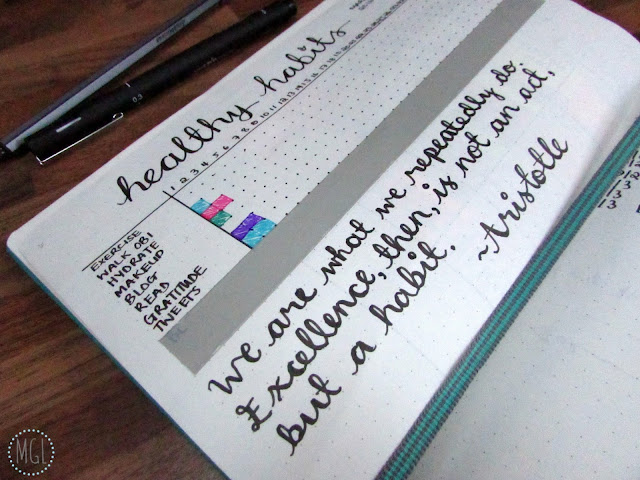 healthy habits
1 2 3 4 5 6 7 8 9 10 11 12 13 14 15 16
EXERCISE
WALK OBI
HYDRATE
MAKEUP
BLOG
READ
GRATITUDE
TWEETS
We are what we repeatedly do.
Excellence, then, is not an act,
but a habit.
~Aristotle
0.5
13
13
MGL